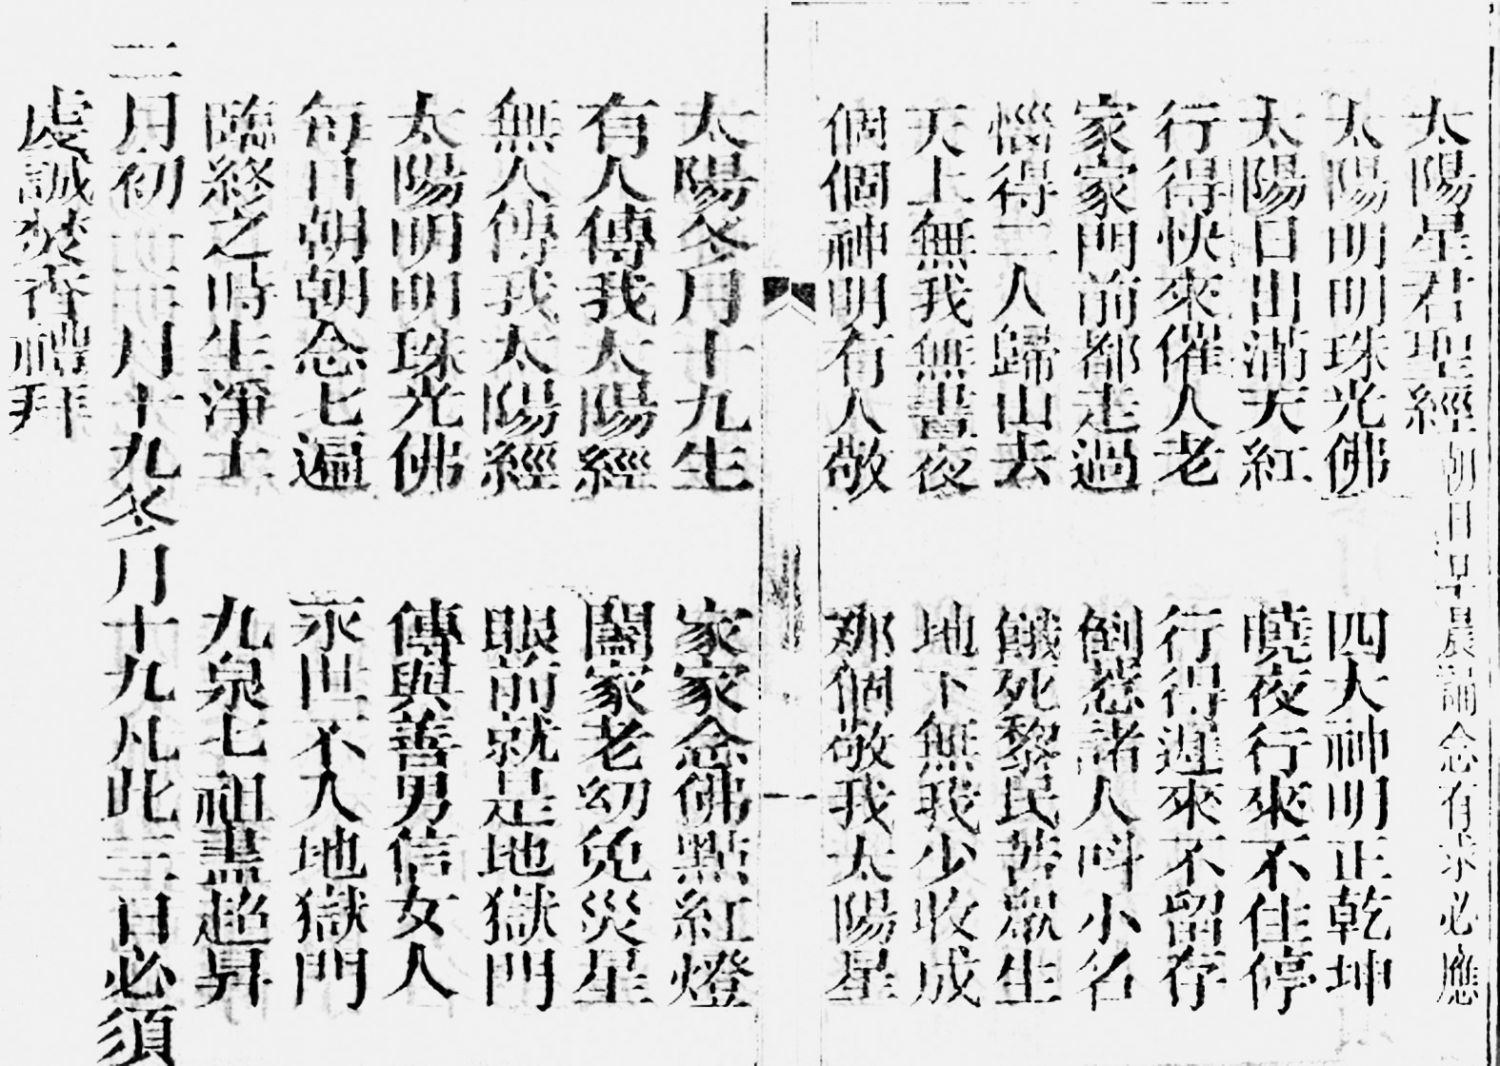 太陽星君聖經 朝日早晨誦念有求必應
太陽明明珠光佛 四大神明正乾坤
太陽日出滿天紅 曉夜行來不住停
行得快來催人老 行得遲來不留存
家家門前都走過 倒惹諸人呌小名
惱得二人歸山去 餓死黎民苦眾生
天上無我無晝夜 地下無我少收成
個個神明有人敬 那個敬我太陽星
太陽冬月十九生 家家念佛點紅燈
有人傳我太陽經 闔家老幼免災星
無人傳我太陽經 眼前就是地獄門
太陽明明珠光佛 傳與善男信女人
每日朝朝念七遍 永世不入地獄門
臨終之時生淨土 九泉七祖盡超昇
二月初一三月十九冬月十九凡此三日必須
虔誠焚香禮拜